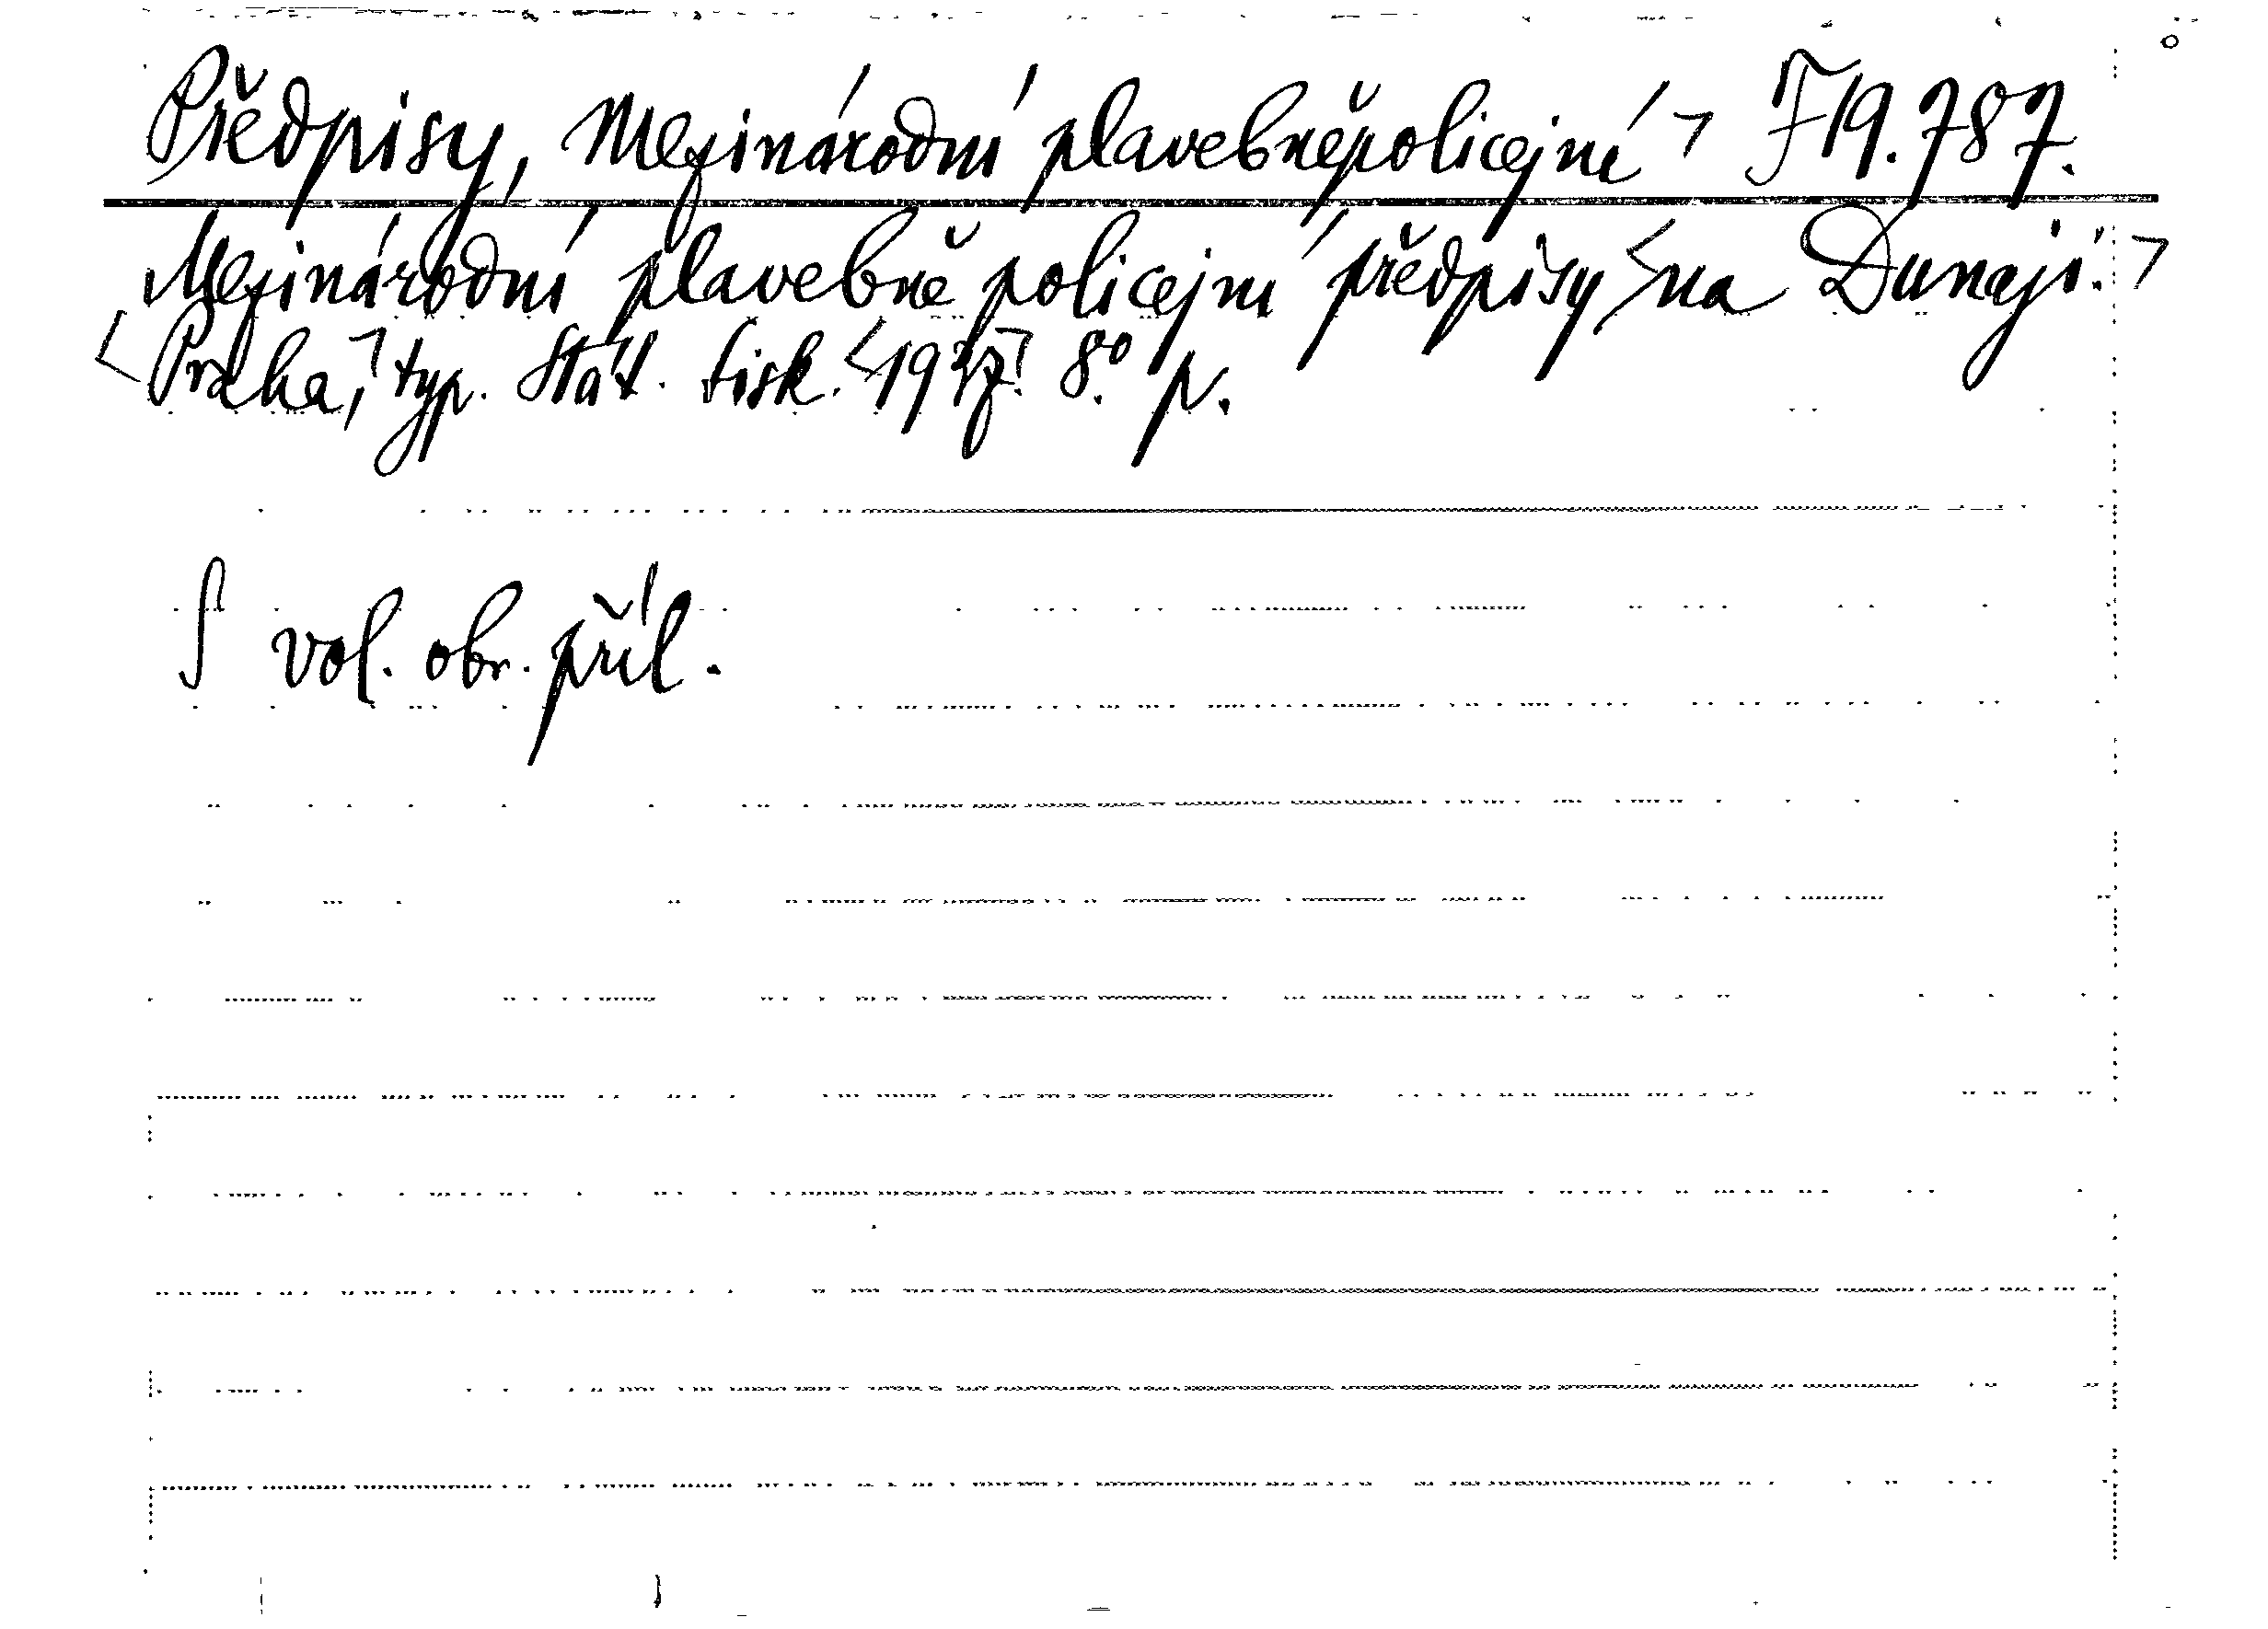 Předpisy, Mezinárodní plavebněpolicejní ˺ F 19.787.
Mezinárodní plavebně policejní předpisy <na Dunaji.>
<Praha,> typ. Stát. tisk. 8° p.
S vol. obr. příl.